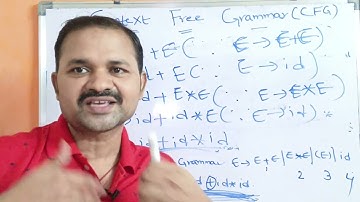 Context Free Grammar (CFG)
+ E (∵ E → E+E)
+ E (∵ E → id)
id + E*E (∵ E → E*E)
id + id*E (∵ E → id)
id + id * id
Grammar E → E+E | E*E | (E) | id
1 2 3 4
id + id * id